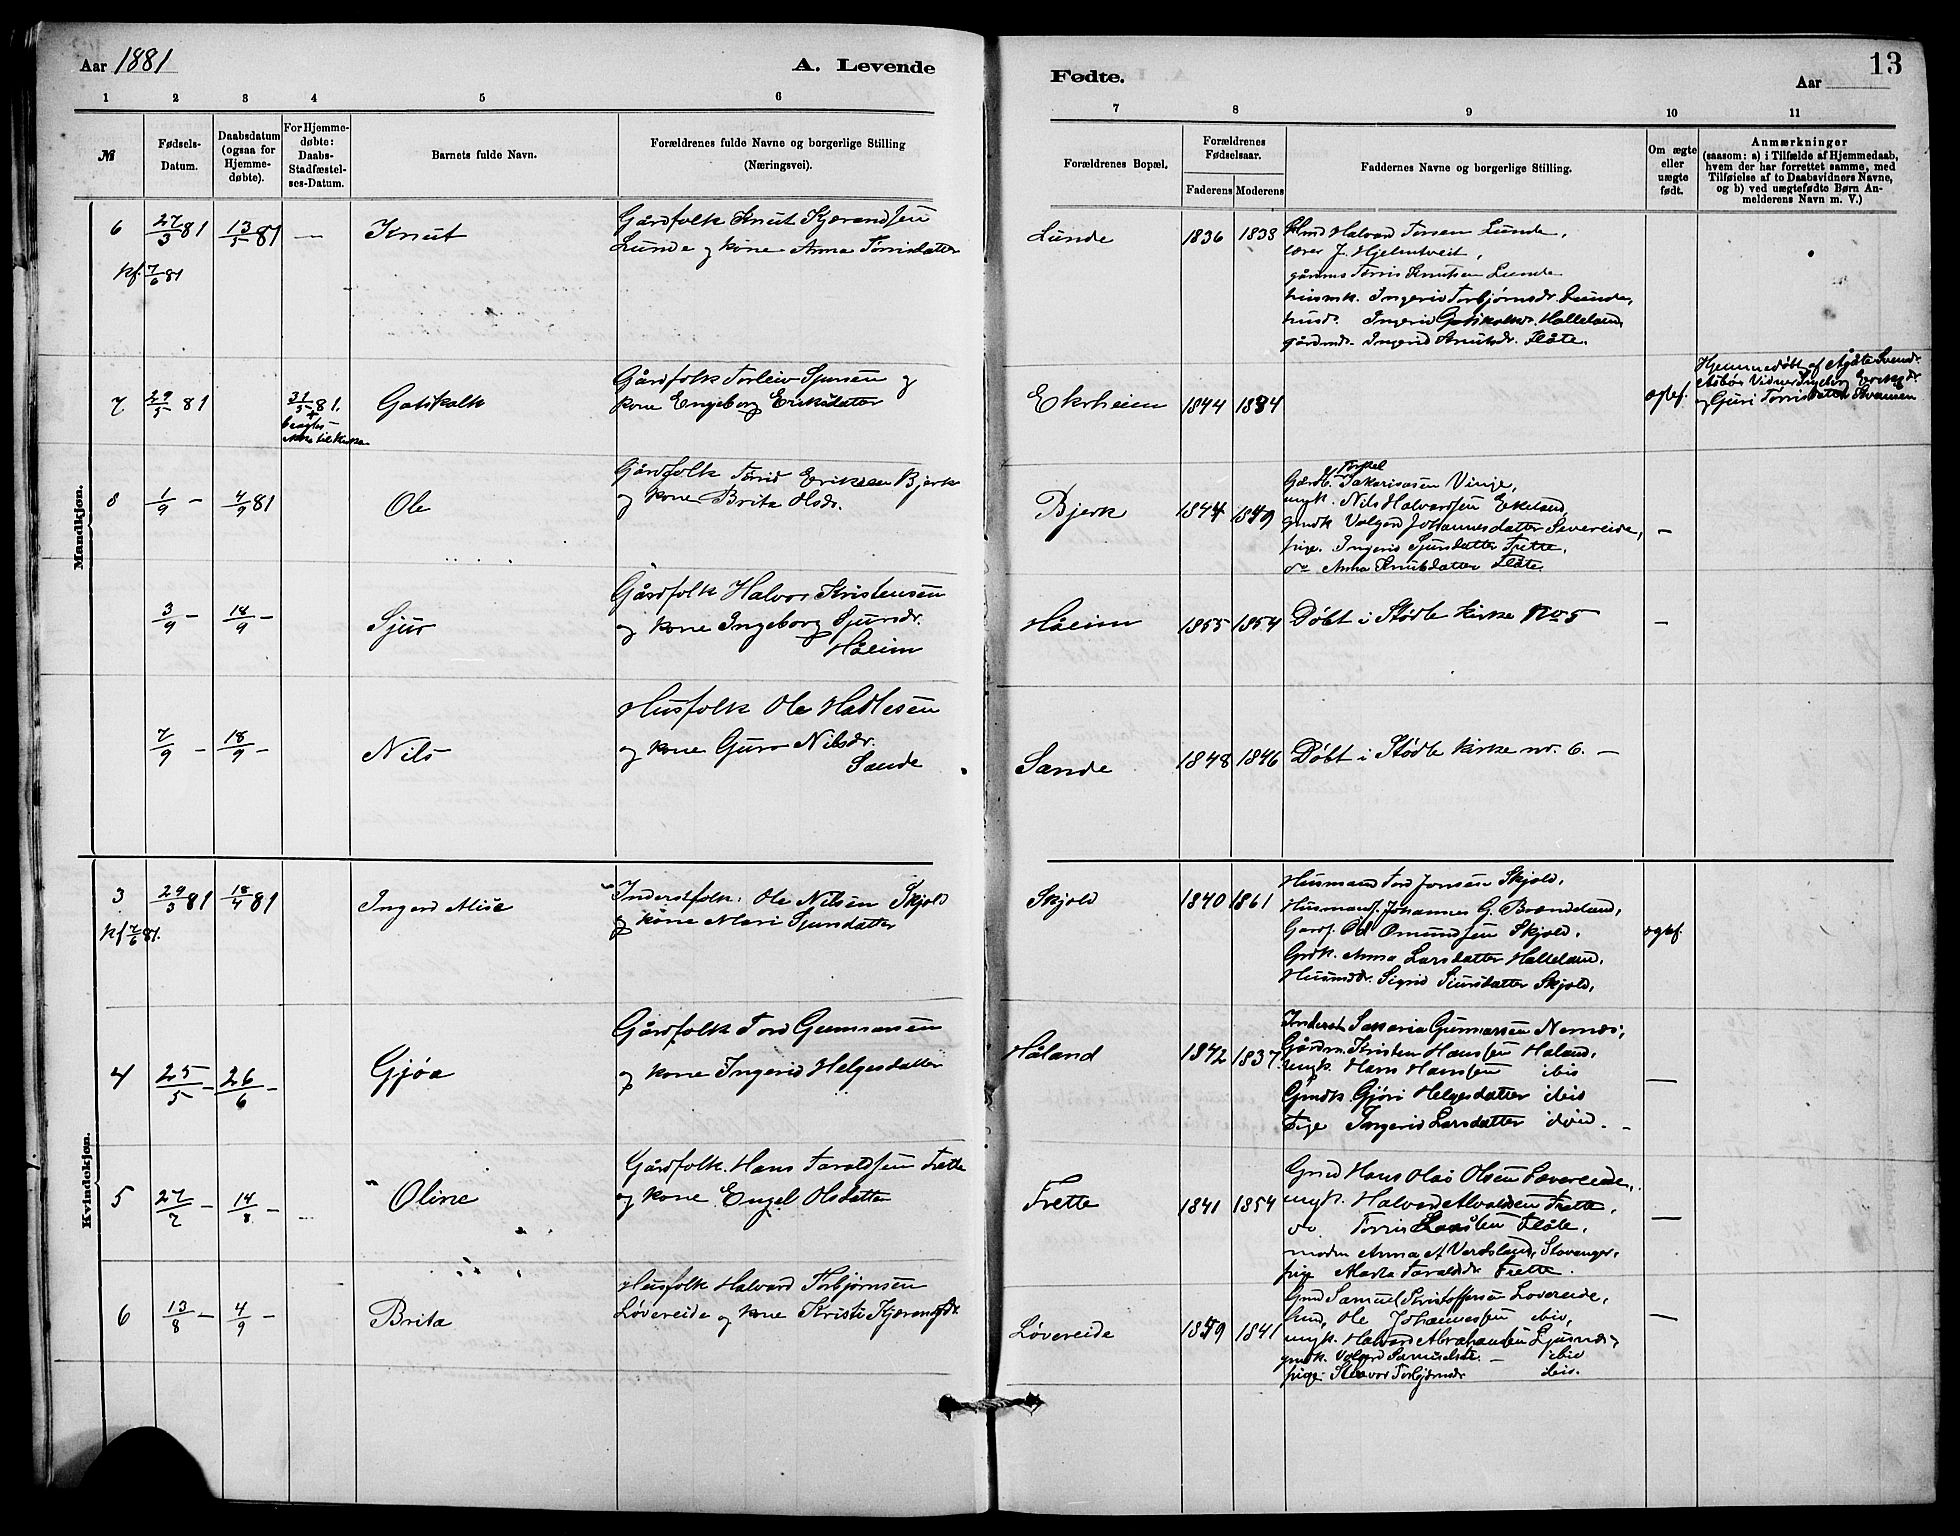 Aar 1881
A. Levende
Fødte.
13
Aar
1 2 3 4 5 6
7 8 9 10 11
№
Fødsels-
Datum.
Daabsdatum
(ogsaa for
Hjemme-
døbte).
For Hjemme-
døbte:
Daabs-
Stadfæstel-
ses-Datum.
Barnets fulde Navn.
Forældrenes fulde Navne og borgerlige Stilling
(Næringsvei).
Forældrenes Bopæl.
Forældrenes
Fødselsaar.
Faderens Moderens
Faddernes Navne og borgerlige Stilling.
Om ægte
eller
uægte
født.
Anmærkninger
(saasom: a) i Tilfælde af Hjemmedaab,
hvem der har forrettet samme, med
Tilføielse af to Daabsvidners Navne,
og b) ved uægtefødte Børn An-
melderens Navn m. V.)
Mandkjøn.
6 27/3 81 13/5 81 —
Knut
Gårdfolk Knut Kjerandsen
Lunde og kone Anna Torrisdatter
kf. 7/6 81
Lunde 1836 1838
Halvard Torsen Lunde,
lærer J. Hjelmtveit,
Torris Knutsen Lunde
husmk. Ingerid Torbjørnsdr. Lunde,
Ingerid Halleland,
Ingerid Knutsdr. Flåte.
7 29/5 81 31/5 81.
Gotskalk
Gårdfolk Torleiv Sjursen og
kone Engeborg Eriksdatter
Ekrheim 1844 1834
Hjemmedøbt af Svends.
Vidner Ingeborg Eriksdr
og Guri Torrisdatter
8 1/9 — 4/9 81
Ole
Gårdfolk Torris Eriksen Bjerk
og kone Brita Olsdr.
Bjerk 1844 1849
Torkel
Sakariasen Vinje,
ungk. Nils Halvardsen Ekeland,
gmdk Valgerd Johannesdatter Sævereide,
pige. Ingerid Sjursdatter Frette,
do Anna Knutsdatter Flåte.
—
3/9 — 18/9 —
Sjur
Gårdfolk Halvor Kristensen
og kone Ingeborg Sjursdr.
Håeim
Håeim 1855 1854 Døbt i Stødle kirke No 5
—
7/9 — 18/9 —
Nils
Husfolk Ole Hadlesen
og kone Guro Nilsdr.
Sande
Sande 1848 1846 Døbt i Stødle kirke nr. 6. —
Kvindekjøn.
3 29/3 81 18/4 81
kf 7/6 81.
Ingerd Alise
Inderstfolk: Ole Nilsen Skjold
og kone Mari Sjursdatter
Skjold 1840 1861
Husmand Tord Jonsen Skjold,
Husmand. Johannes G. Brandeland,
Omundsen Skjold.
Gmdk. Anna Larsdatter Halleland,
Husmdr. Sigrid Sjursdatter Skjold,
4 25/5 — 26/6 —
Gjøa
Gårdfolk Tord Gunnarsen
og kone Ingerid Helgesdatter
Håland 1842 1837.
Inderst Sakaria Gunnarsen Nernes,
Gårdm. Kristen Hansen Håland,
ungk. Hans Hansen ibid
Gmdk. Gjøri Helgesdatter ibid
Pige Ingerid Larsdatter ibid. —
—
5 27/7 — 14/8 —
Oline
Gårdfolk. Hans Taraldsen Frette
og kone Engel Olsdatter
Frette 1841 1854
Gmd Hans Olai Olsen Sævereide,
ungk. Halvard Frette,
do Torris Larsen Flåte,
Anna Stavanger,
pige Marta Taraldsdr Frette.
—
6 13/8 — 4/9 —
Brita
Husfolk Halvard Torbjørnsen
Løvereide og kone Kristi Kjerandsdr.
Løvereide 1849 1841
Gmd Samuel Kristoffersen Lovereide,
Ole Johannessen ibid,
ungk. Halvard Abrahamsen Ljusnes,
gmdk. — ibid
pige. Torbjørnsdr ibid.
—